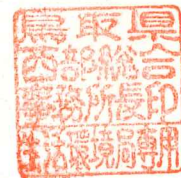 鳥取県
西部総合
事務所長印
生活環境局専用